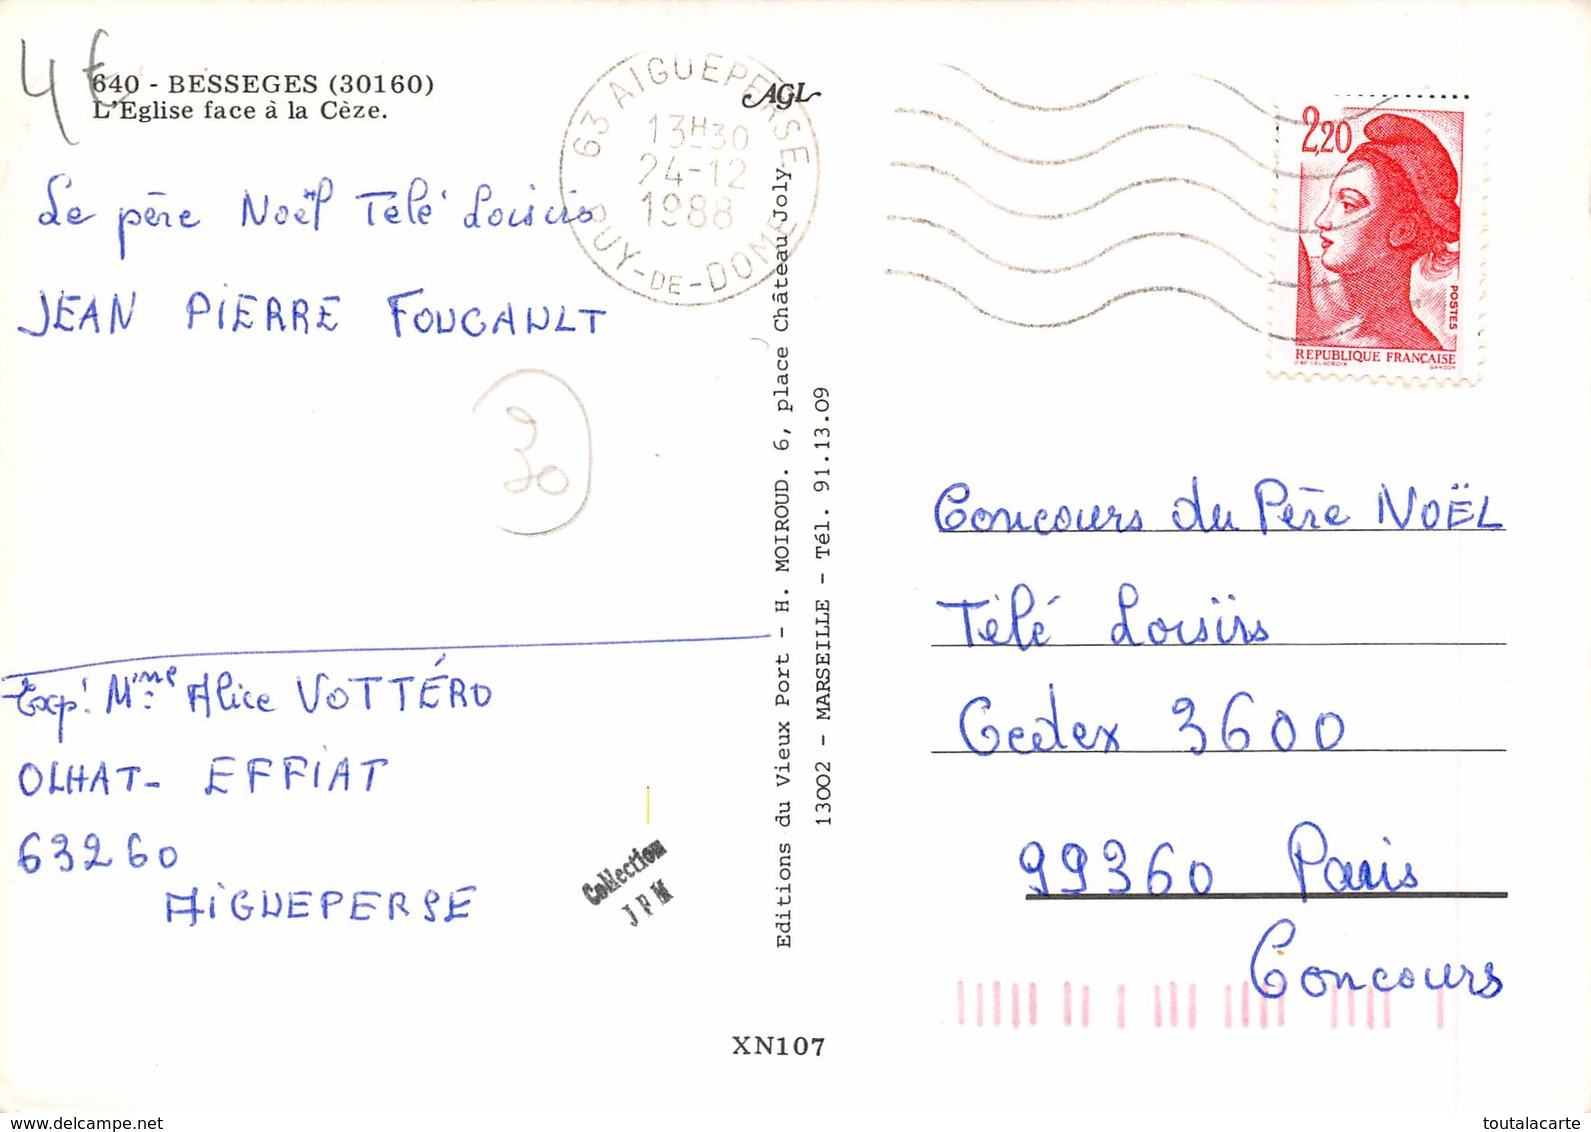 4€
640 - BESSEGES (30160)
L'Eglise face à la Cèze.
Le père Noël Télé Loisirs
JEAN PIERRE FOUCAULT
30
Exp: Mme Alice VOTTÉRO
OLHAT- EFFIAT
63260
AIGUEPERSE
Collection
JPM
63 AIGUEPERSE
13H30
24-12
1988
PUY-DE-DOME
AGL
Editions du Vieux Port - H. MOIROUD. 6, place Château Joly
13002 - MARSEILLE - Tél. 91.13.09
XN107
2,20
POSTES
REPUBLIQUE FRANÇAISE
D'AP. DELACROIX GANDON
Concours du Père NOËL
Télé Loisirs
Cedex 3600
99360 Paris
Concours
www.delcampe.net
toutalacarte